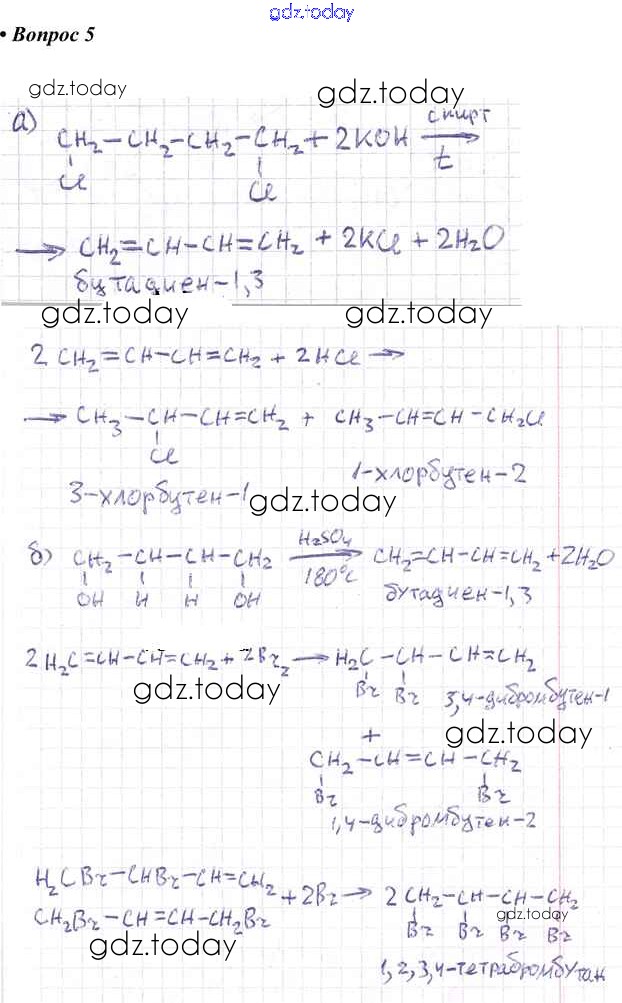 gdz.today
• Вопрос 5
gdz.today
gdz.today
а) CH₂–CH₂–CH₂–CH₂ + 2KOH спирт t →
Cl Cl
→ CH₂=CH–CH=CH₂ + 2KCl + 2H₂O
бутадиен-1,3
gdz.today gdz.today
2 CH₂=CH–CH=CH₂ + 2HCl →
→ CH₃–CH–CH=CH₂ + CH₃–CH=CH–CH₂Cl
Cl
1-хлорбутен-2
3-хлорбутен-1
gdz.today
б) CH₂–CH–CH–CH₂ H₂SO₄ 180°C → CH₂=CH–CH=CH₂ + 2H₂O
OH H H OH
бутадиен-1,3
2 H₂C=CH–CH=CH₂ + 2Br₂ → H₂C–CH–CH=CH₂
Br Br
3,4-дибромбутен-1
gdz.today
+
gdz.today
CH₂–CH=CH–CH₂
Br Br
1,4-дибромбутен-2
H₂CBr–CHBr–CH=CH₂
CH₂Br–CH=CH–CH₂Br
+ 2Br₂ → 2 CH₂–CH–CH–CH₂
gdz.today
Br Br Br Br
gdz.today
1,2,3,4-тетрабромбутан